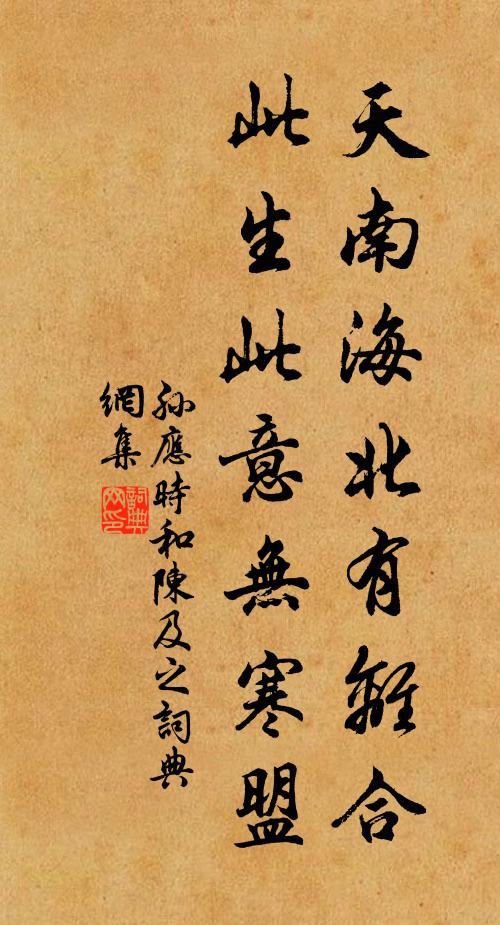 天南海北有離合
此生此意無寒盟
孫應時和陳及之詞典
網集
詞典
网印